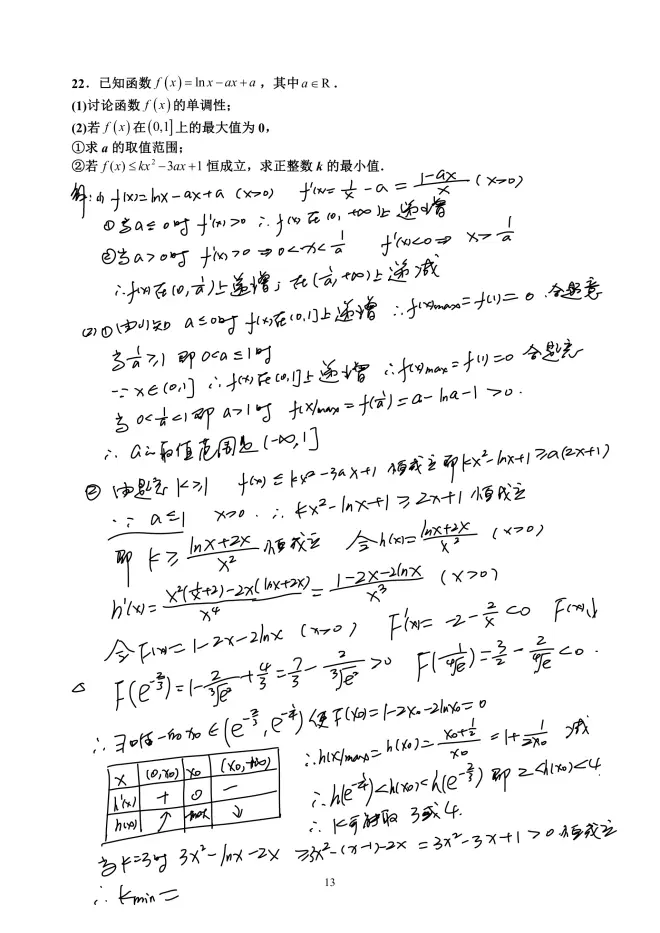 22．已知函数 f(x)=ln x-ax+a，其中 a∈R．
(1)讨论函数 f(x) 的单调性；
(2)若 f(x) 在 (0,1] 上的最大值为 0，
①求 a 的取值范围；
②若 f(x)≤kx²-3ax+1 恒成立，求正整数 k 的最小值．
解:(1) f(x)=lnx-ax+a (x>0) f'(x)=1/x-a=(1-ax)/x (x>0)
①当a≤0时 f'(x)>0 ∴f(x)在(0,+∞)上递增
②当a>0时 f'(x)>0⇒0<x<1/a f'(x)<0⇒x>1/a
∴f(x)在(0,1/a)上递增；在(1/a,+∞)上递减
(2)①由(1)知 a≤0时 f(x)在(0,1]上递增 ∴f(x)max=f(1)=0 合题意
当1/a≥1 即0<a≤1时
∵x∈(0,1] ∴f(x)在(0,1]上递增 ∴f(x)max=f(1)=0 合题意
当0<1/a<1即a>1时 f(x)max=f(1/a)=a-lna-1>0.
∴a的取值范围是(-∞,1]
② 由题意 k≥1 f(x)≤kx²-3ax+1 恒成立即kx²-lnx+1≥a(2x+1)
∵a≤1 x>0. ∴kx²-lnx+1≥2x+1 恒成立
即 k≥(lnx+2x)/x² 恒成立 令h(x)=(lnx+2x)/x² (x>0)
h'(x)=(x²(1/x+2)-2x(lnx+2x))/x⁴=(1-2x-2lnx)/x³ (x>0)
令F(x)=1-2x-2lnx (x>0) F'(x)=-2-2/x<0 F(x)↓
F(e^(-2/3))=1-2/∛e²+4/3=7/3-2/∛e²>0 F(1/⁴√e)=3/2-2/⁴√e<0.
∴∃唯一的x₀∈(e^(-2/3),e^(-1/4))使F(x₀)=1-2x₀-2lnx₀=0
x (0,x₀) x₀ (x₀,+∞)
h'(x) + 0 -
h(x) ↑ max ↓
∴h(x)max=h(x₀)=(x₀+1/2)/x₀²=1+1/2x₀ 减
∴h(e^(-1/4))<h(x₀)<h(e^(-2/3)) 即2<h(x₀)<4
∴k可能取3或4.
当k=3时 3x²-lnx-2x≥3x²-(x-1)-2x=3x²-3x+1>0恒成立
∴kmin=
13